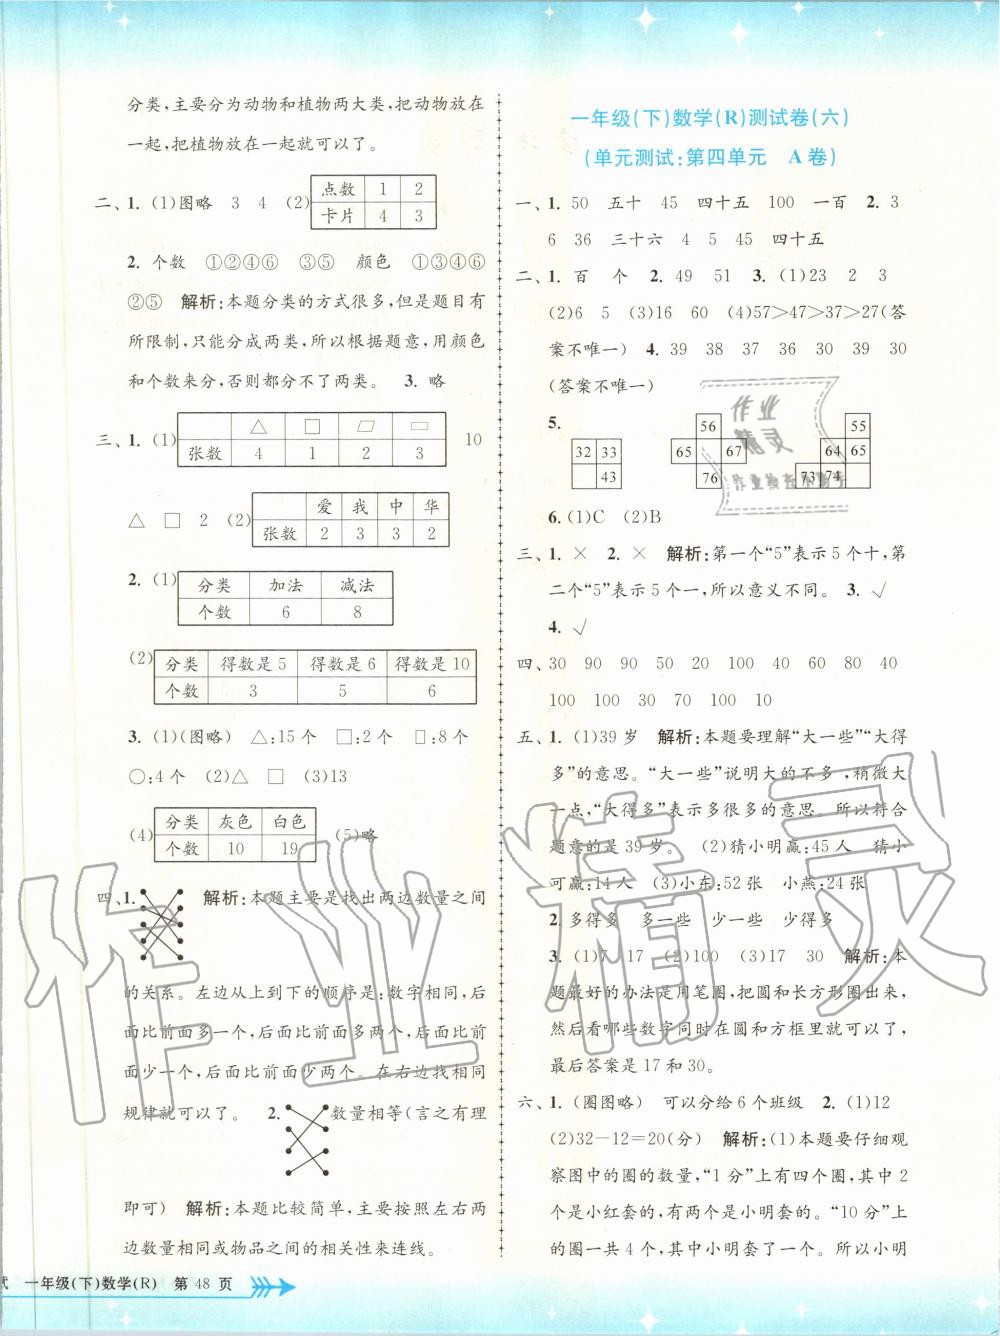 分类,主要分为动物和植物两大类,把动物放在
一起,把植物放在一起就可以了。
二、1. (1)图略 3 4 (2)
点数 1 2
卡片 4 3
2. 个数 ①②④⑥ ③⑤ 颜色 ①③④⑥
②⑤ 解析:本题分类的方式很多,但是题目有
所限制,只能分成两类,所以根据题意,用颜色
和个数来分,否则都分不了两类。 3. 略
三、1. (1)
△ □ ▱ ▭
张数 4 1 2 3
10
△ □ 2 (2)
爱 我 中 华
张数 2 3 3 2
2. (1)
分类 加法 减法
个数 6 8
(2)
分类 得数是5 得数是6 得数是10
个数 3 5 6
3. (1)(图略) △:15个 □:2个 ▯:8个
○:4个 (2)△ □ (3)13
(4)
分类 灰色 白色
个数 10 19
(5)略
四、1. 解析:本题主要是找出两边数量之间
的关系。左边从上到下的顺序是:数字相同,后
面比前面多一个,后面比前面多两个,后面比前
面少一个,后面比前面少两个。在右边找出相同
规律就可以了。 2. 数量相等(言之有理
即可) 解析:本题比较简单,主要按照左右两
边数量相同或物品之间的相关性来连线。
式 一年级(下)数学(R) 第 48 页
一年级(下)数学(R)测试卷(六)
(单元测试:第四单元 A卷)
一、1. 50 五十 45 四十五 100 一百 2. 3
6 36 三十六 4 5 45 四十五
二、1. 百 个 2. 49 51 3. (1)23 2 3
(2)6 5 (3)16 60 (4)57>47>37>27(答
案不唯一) 4. 39 38 37 36 30 39 30
(答案不唯一)
5.
32 33
43
56
65 67
76
55
64 65
73 74
6. (1)C (2)B
三、1. × 2. × 解析:第一个“5”表示5个十,第
二个“5”表示5个一,所以意义不同。 3. √
4. √
四、30 90 90 50 20 100 40 60 80 40
100 100 30 70 100 10
五、1. (1)39岁 解析:本题要理解“大一些”“大得
多”的意思。“大一些”说明大的不多,稍微大
一点,“大得多”表示多很多的意思。所以符合
题意的是39岁。 (2)猜小明赢:45人 猜小
可赢:14人 (3)小东:52张 小燕:24张
2. 多得多 多一些 少一些 少得多
3. (1)7 17 (2)100 (3)17 30 解析:本
题最好的办法是用笔圈,把圆和长方形圈出来,
然后看哪些数字同时在圆和方框里就可以了,
最后答案是17和30。
六、1. (圈图略) 可以分给6个班级 2. (1)12
(2)32-12=20(分) 解析:(1)本题要仔细观
察图中的圈的数量,“1分”上有四个圈,其中2
个是小红套的,有两个是小明套的。“10分”上
的圈一共4个,其中小红套了1个。所以小明
作业精灵
作业
精灵